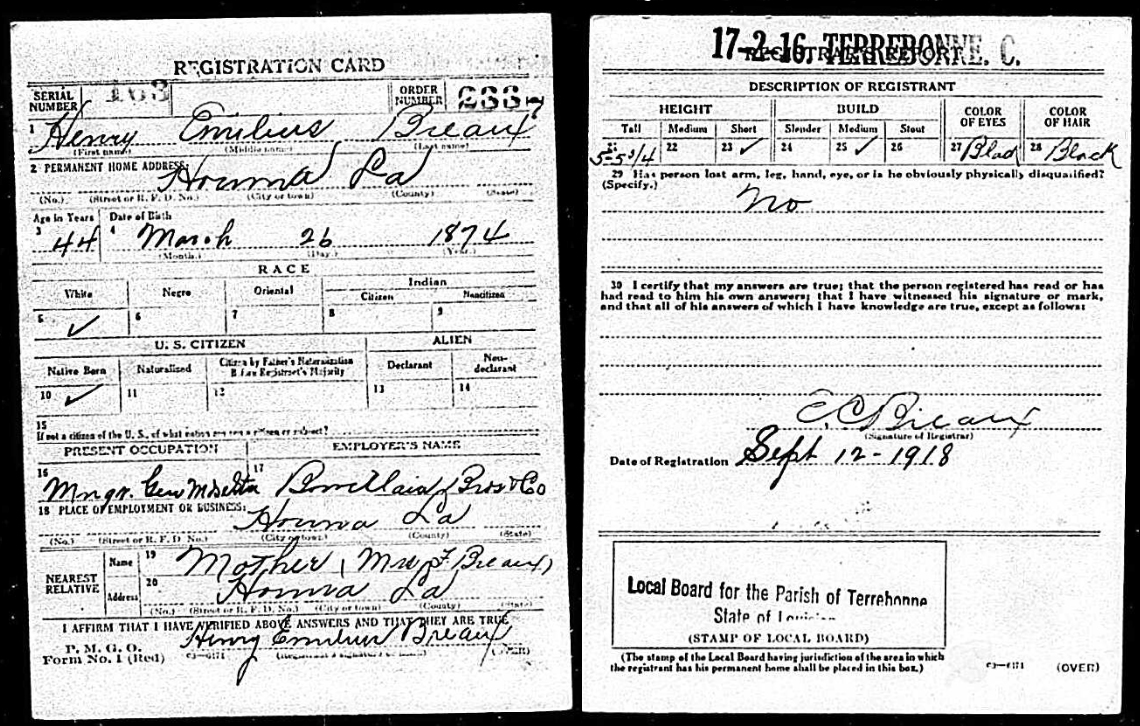 REGISTRATION CARD
SERIAL NUMBER 163 ORDER NUMBER
1 Henry Emilius Breaux
(First name) (Middle name) (Last name)
2 PERMANENT HOME ADDRESS:
Houma La
(No.) (Street or R. F. D. No.) (City or town) (County) (State)
Age in Years Date of Birth
3 44 4 March 26 1874
(Month.) (Day.) (Year.)
RACE
White Negro Oriental Indian
Citizen Noncitizen
5 ✓ 6 7 8 9
U. S. CITIZEN ALIEN
Native Born Naturalized Citizen by Father's Naturalization Before Registrant's Majority Declarant Non-declarant
10 ✓ 11 12 13 14
15
If not a citizen of the U. S., of what nation are you a citizen or subject?
PRESENT OCCUPATION EMPLOYER'S NAME
16 Mngr. Gen Mdse 17 Bros & Co
18 PLACE OF EMPLOYMENT OR BUSINESS:
Houma La
(No.) (Street or R. F. D. No.) (City or town) (County) (State)
NEAREST RELATIVE Name 19 Mother (Mrs F Breaux)
Address 20 Houma La
(No.) (Street or R. F. D. No.) (City or town) (County) (State)
I AFFIRM THAT I HAVE VERIFIED ABOVE ANSWERS AND THAT THEY ARE TRUE
P. M. G. O.
Form No. 1 (Red) 03—6171 Henry Emilius Breaux
(OVER)
17-2-16 TERREBONNE. C.
REGISTRAR'S REPORT
DESCRIPTION OF REGISTRANT
HEIGHT BUILD COLOR OF EYES COLOR OF HAIR
Tall Medium Short Slender Medium Stout
21 5-5 3/4 22 23 ✓ 24 25 ✓ 26 27 28 Black
29 Has person lost arm, leg, hand, eye, or is he obviously physically disqualified?
(Specify.)
No
30 I certify that my answers are true; that the person registered has read or has
had read to him his own answers; that I have witnessed his signature or mark,
and that all of his answers of which I have knowledge are true, except as follows:
E C Breaux
(Signature of Registrar)
Date of Registration Sept 12-1918
Local Board for the Parish of Terrebonne
State of Louisiana
(STAMP OF LOCAL BOARD)
(The stamp of the Local Board having jurisdiction of the area in which
the registrant has his permanent home shall be placed in this box.)
03—6171 (OVER)